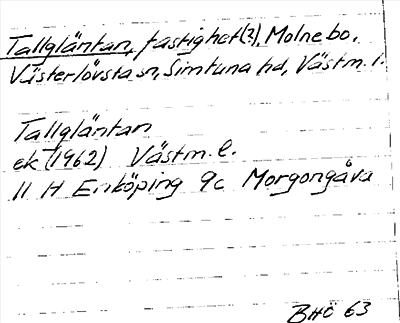 Tallgläntan, fastighet(?), Molnebo,
Västerlövsta sn, Simtuna hd, Västm. l.
Tallgläntan
ek (1962) Västm. l.
11 H Enköping 9c Morgongåva
BHÖ 63